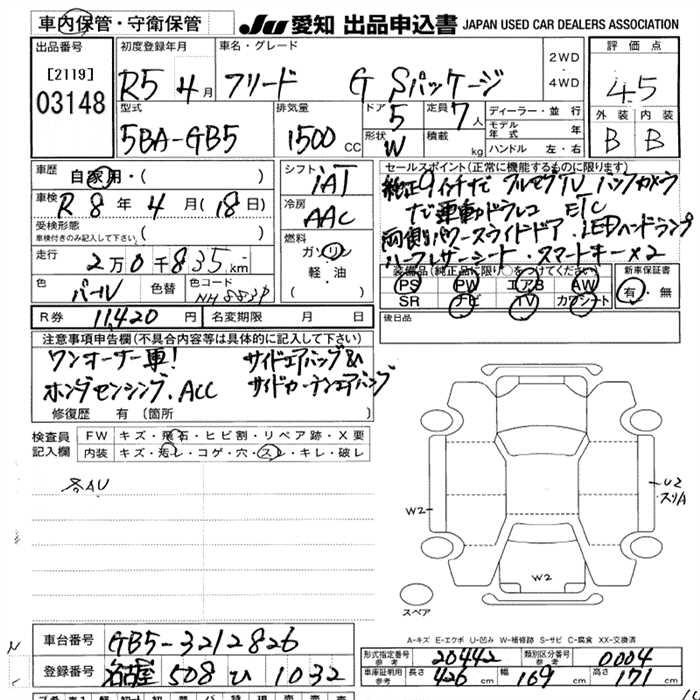 車内保管・守衛保管
JU 愛知 出品申込書 JAPAN USED CAR DEALERS ASSOCIATION
出品番号
[2119]
03148
初度登録年月
R5 4月
車名・グレード
フリード G Sパッケージ
2WD
・
4WD
評価点
4.5
外装 内装
B B
型式
5BA-GB5
排気量
1500 CC
ドア 5
形状 W
定員 7人
積載 kg
ディーラー・並行
モデル年式 年
ハンドル 左・右
車歴
自家用・( )
車検
R 8年 4月(18日)
受検形態
車検付きのみ記入して下さい ( )
走行
2万0千835km
色
パール
色替
色コード
NH883P
シフト
IAT
冷房
AAC
燃料
ガソリン
軽・油
( )
セールスポイント(正常に機能するものに限ります)
純正9インチナビ フルセグTV バックカメラ
ナビ連動ドラレコ ETC
両側パワースライドドア・LEDヘッドランプ
ハーフレザーシート・スマートキー×2
装備品(純正品に限り○をつけてください)
PS PW エアB AW
SR ナビ TV カワシート
新車保証書
有・無
後日品
R券 11,420円
名変期限 月 日
注意事項申告欄(不具合内容等は具体的に記入して下さい)
ワンオーナー車! サイドエアバッグ&
ホンダセンシング.ACC サイドカーテンエアバッグ
修復歴 有(箇所
検査員
記入欄
FW キズ・飛石・ヒビ割・リペア跡・X要
内装 キズ・汚レ・コゲ・穴・スレ・キレ・破レ
各AU
W2
U2
スリA
W2
スペア
A-キズ E-エクボ U-凹み W-補修跡 S-サビ C-腐食 XX-交換済
車台番号 GB5-3212826
登録番号 名古屋 508 ひ 1032
形式指定番号 参考 20442
類別区分番号 参考 0004
車庫証明用 参考 長さ 426cm 幅 169cm 高さ 171cm